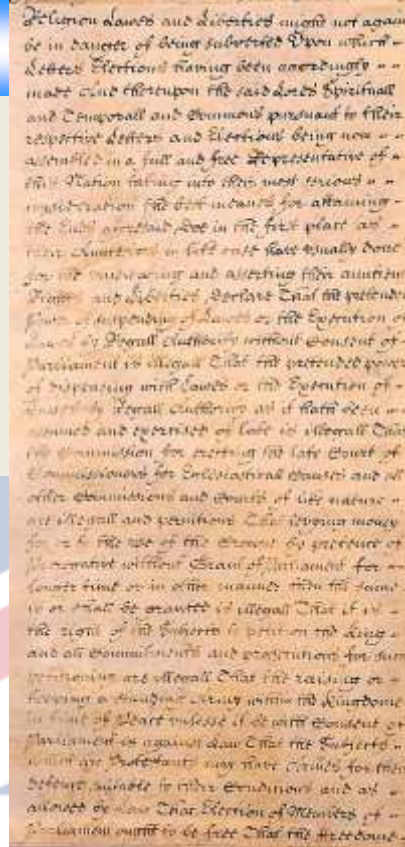 Religion Lawes and Liberties might not again
be in danger of being subverted Upon which
Letters Elections having been accordingly
made And thereupon the said Lords Spirituall
and Temporall and Commons pursuant to their
respective Letters and Elections being now
assembled in a full and free Representative of
this Nation taking into their most serious
consideration the best meanes for attaining
the Ends aforesaid Doe in the first place as
their Auncestors in like case have usually done
for the vindicating and asserting their auntient
Rights and Liberties, Declare That the pretended
Power of suspending of Lawes or the Execution of
Lawes by Regall Authority without Consent of
Parliament is illegall That the pretended power
of dispensing with Lawes or the Execution of
Lawes by Regall Authority as it hath beene
assumed and exercised of late is illegall That
the Commission for erecting the late Court of
Commissioners for Ecclesiasticall Causes and all
other Commissions and Courts of like nature
are illegall and pernitious That levying money
for or to the use of the Crowne by pretence of
Prerogative without Grant of Parliament for
longer time or in other manner then the same
is or shall be granted is illegall That it is
the right of the Subjects to petition the King
and all Commitments and prosecutions for such
petitioning are illegall That the raising or
keeping a standing Army within the Kingdome
in time of Peace unlesse it be with Consent of
Parliament is against Law That the Subjects
which are Protestants may have Armes for their
defence suitable to their Conditions and as
allowed by Law That Election of Members of
Parliament ought to be free That the freedome